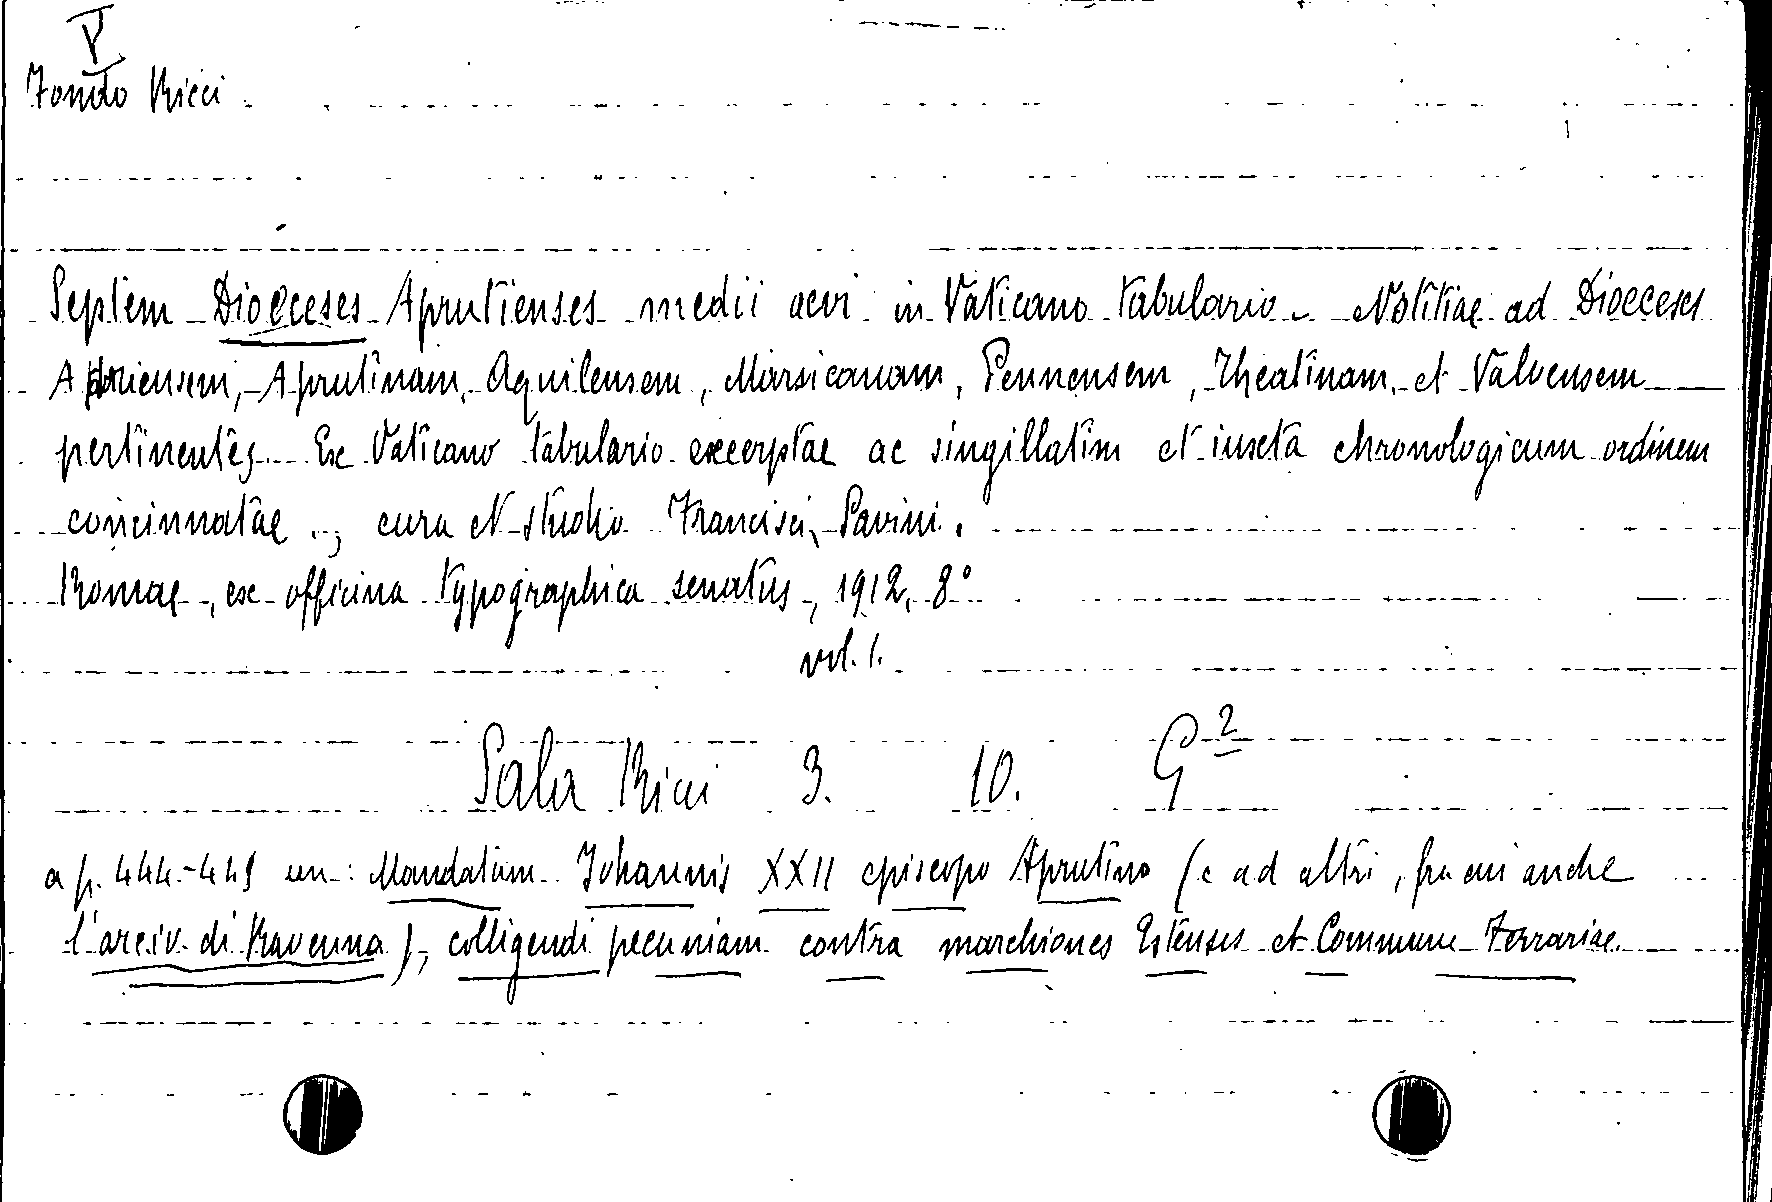 V
Fondo Ricci
Septem Dioeceses Aprutienses medii aevi in Vaticano tabulario. Notitiae ad Dioeceses
Aprutinam, Aquilensem, Marsicanam, Pennensem, Theatinam et Valvensem
pertinentes. Ex Vaticano tabulario excerptae ac singillatim et iuxta chronologicum ordinem
concinnatae, cura et studio Francisci Savini.
Romae, ex officina typographica senatus, 1912, 8°
vol. 1.
Sala Ricci 3. 10. G 2
a p. 444-445 un: Mandatum Johannis XXII episcopo Aprutino (e ad altri, fra cui anche
l'arciv. di Ravenna), colligendi pecuniam contra marchiones Estenses et Commune Ferrariae.